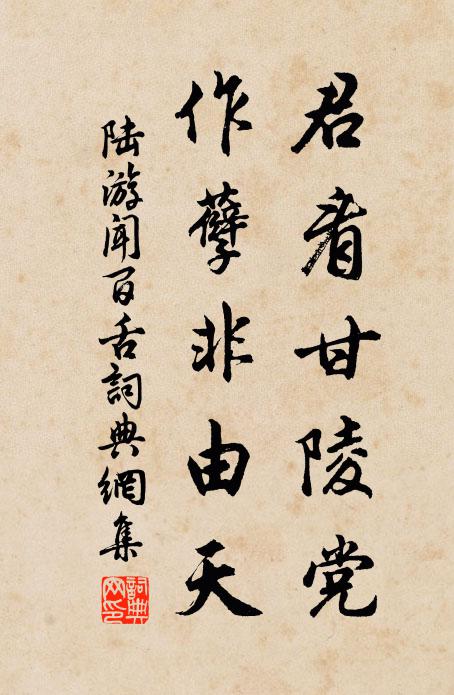 君看甘陵党
作孽非由天
陆游闻百舌詞典網集
詞典网印